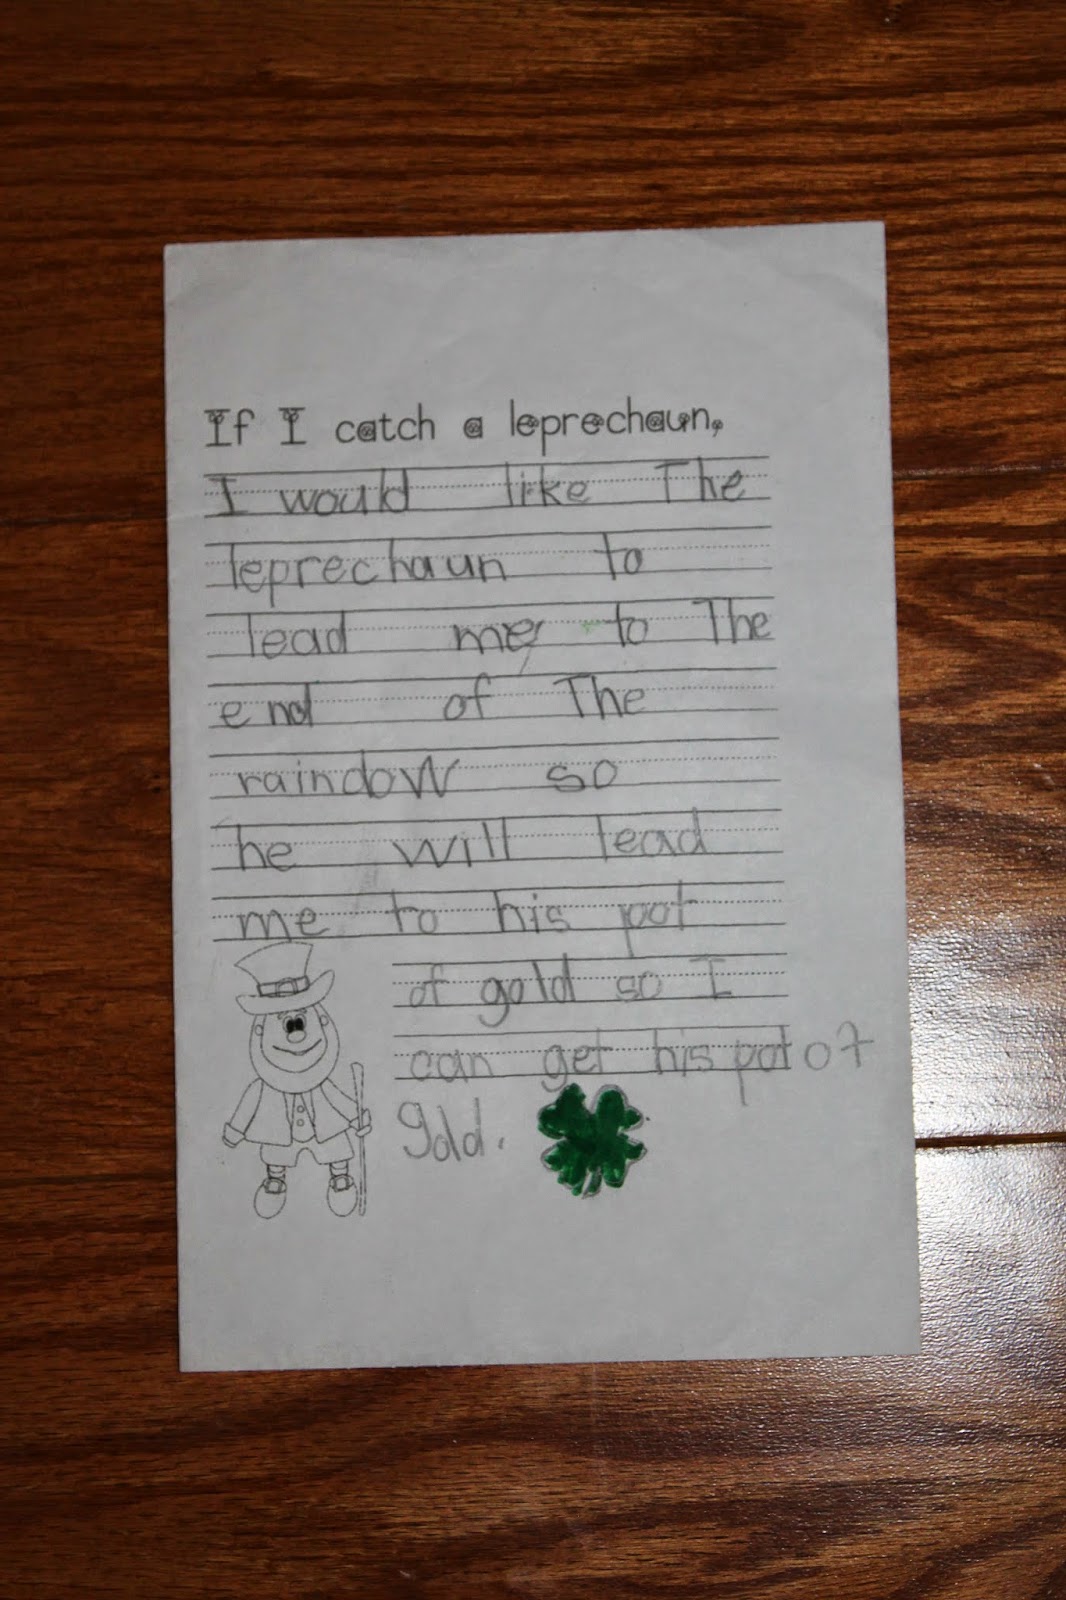 If I catch a leprechaun,
I would like The
leprechaun to
lead me to The
end of The
raindoW so
he will lead
me to his pot
of gold so I
can get his pot of
gold.